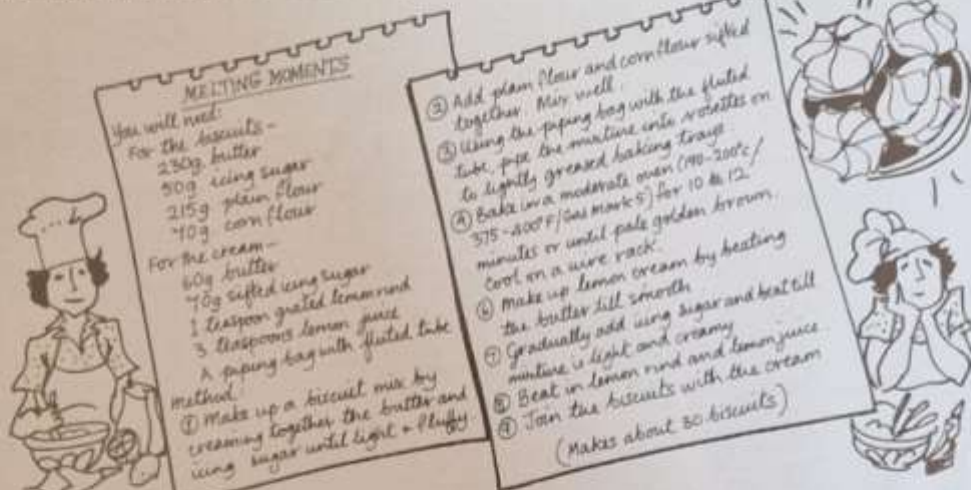 MELTING MOMENTS
You will need:
For the biscuits -
230g butter
50g icing sugar
215g plain flour
40g corn flour
For the cream -
60g butter
70g sifted icing sugar
1 teaspoon grated lemon rind
3 teaspoons lemon juice
A piping bag with fluted tube
method:
① Make up a biscuit mix by
creaming together the butter and
icing sugar until light + fluffy
② Add plain flour and cornflour sifted
together. Mix well.
③ Using the piping bag with the fluted
tube, pipe the mixture into rosettes on
to lightly greased baking trays.
④ Bake in a moderate oven (190-200°c/
375-400°F/Gas Mark 5) for 10 to 12
minutes or until pale golden brown.
Cool on a wire rack.
⑥ Make up lemon cream by beating
the butter till smooth
⑦ Gradually add icing sugar and beat till
mixture is light and creamy
⑧ Beat in lemon rind and lemon juice.
⑨ Join the biscuits with the cream
(Makes about 30 biscuits)